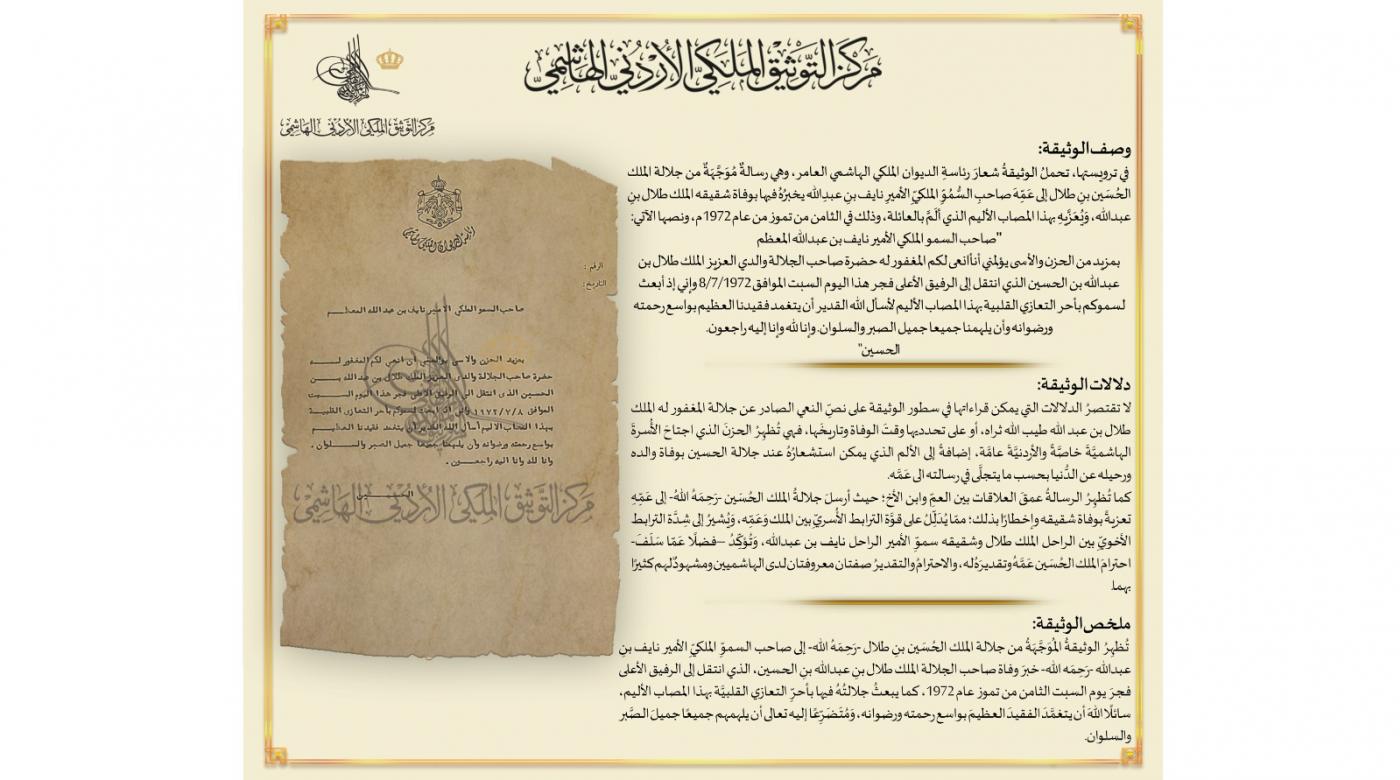 مَركَز التَّوثيق المَلَكيّ الأُرْدُنيّ الهَاشِميّ
مركز التوثيق الملكي الأردني الهاشمي
وصف الوثيقة:
في ترويستها، تحملُ الوثيقةُ شعارَ رئاسةِ الديوان الملكي الهاشمي العامر، وهي رسالةٌ مُوَجَّهَةٌ من جلالة الملك
الحُسَين بنِ طلال إلى عَمِّهَ صاحبِ السُّمُوِّ الملكيّ الأميرِ نايف بنِ عبدالله يخبرُهُ فيها بوفاة شقيقه الملك طلال بنِ
عبدالله، وَيُعَزِّيهِ بهذا المصاب الأليم الذي ألَمَّ بالعائلة، وذلك في الثامن من تموز من عام 1972م، ونصها الآتي:
"صاحب السمو الملكي الأمير نايف بن عبدالله المعظم
بمزيد من الحزن والأسى يؤلمني أن أنعى لكم المغفور له حضرة صاحب الجلالة والدي العزيز الملك طلال بن
عبدالله بن الحسين الذي انتقل إلى الرفيق الأعلى فجر هذا اليوم السبت الموافق 8/7/1972 وإني إذ أبعث
لسموكم بأحر التعازي القلبية بهذا المصاب الأليم لأسأل الله القدير أن يتغمد فقيدنا العظيم بواسع رحمته
ورضوانه وأن يلهمنا جميعا جميل الصبر والسلوان. وإنا لله وإنا إليه راجعون.
الحسين"
دلالات الوثيقة:
لا تقتصرُ الدلالات التي يمكن قراءاتها في سطور الوثيقة على نصِّ النعي الصادر عن جلالة المغفور له الملك
طلال بن عبد الله طيب الله ثراه، أو على تحدديها وقتَ الوفاة وتاريخَها، فهي تُظهِرُ الحزنَ الذي اجتاحَ الأُسرةَ
الهاشميَّةَ خاصَّةً والأردنيَّةَ عامَّة، إضافةً إلى الألم الذي يمكن استشعارُهُ عند جلالة الحسين بوفاة والده
ورحيله عن الدُّنيا بحسب ما يتجلَّى في رسالته الى عَمِّه.
كما تُظهِرُ الرسالةُ عمقَ العلاقات بين العمّ وابن الأخ؛ حيث أرسلَ جلالةُ الملك الحُسَين -رَحِمَهُ اللهُ- إلى عَمِّهِ
تعزيةً بوفاة شقيقه وإخطارًا بذلك؛ ممّا يُدَلِّلُ على قوَّة الترابط الأُسريّ بين الملك وَعَمِّه، وَيُشيرُ إلى شِدَّة الترابط
الأخويّ بين الراحل الملك طلال وشقيقه سموّ الأمير الراحل نايف بن عبدالله، وَتُؤَكِّدُ –فضلًا عَمّا سَلَفَ-
احترامَ الملك الحُسَين عَمَّهُ وتقديرَهُ له، والاحترامُ والتقديرُ صفتان معروفتان لدى الهاشميين ومشهودٌ لهم كثيرًا
بهما.
ملخص الوثيقة:
تُظهِرُ الوثيقةُ المُوَجَّهَةُ من جلالة الملك الحُسَين بنِ طلال -رَحِمَهُ الله- إلى صاحب السموّ الملكيّ الأمير نايف بنِ
عبدالله -رَحِمَه الله- خبرَ وفاة صاحب الجلالة الملك طلال بنِ عبدالله بنِ الحسين، الذي انتقل إلى الرفيق الأعلى
فجرَ يوم السبت الثامن من تموز عام 1972، كما يبعثُ جلالتُهُ فيها بأحرّ التعازي القلبيَّة بهذا المصاب الأليم،
سائلًا اللهَ أن يتغمَّدَ الفقيدَ العظيمَ بواسع رحمته ورضوانه، وَمُتَضَرِّعًا إليه تعالى أن يلهمهم جميعًا جميلَ الصَّبر
والسلوان.
الرقم :
التاريخ:
صاحب السمو الملكي الامير نايف بن عبد الله المعظم
بمزيد الحزن والاسى يؤلمني أن انعى لكم المغفور له
حضرة صاحب الجلالة والدى العزيز الملك طلال بن عبد الله بن
الحسين الذى انتقل الى الرفيق الاعلى فجر هذا اليوم السبت
الموافق ١٩٧٢/٧/٨ واني اذ ابعث لسموكم بأحر التعازى القلبية
بهذا المصاب الاليم لأسأل الله القدير أن يتغمد فقيدنا العظيم
بواسع رحمته ورضوانه وأن يلهمنا جميعا جميل الصبر والسلوان .
وانا لله وانا اليه راجعون .
الحسين
مَركَز التَّوثيق المَلَكيّ الأُرْدُنيّ الهَاشِميّ